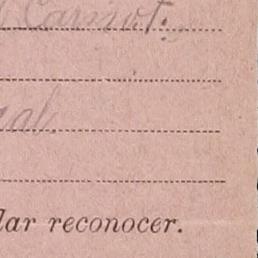 Carnot.
al
lar reconocer.